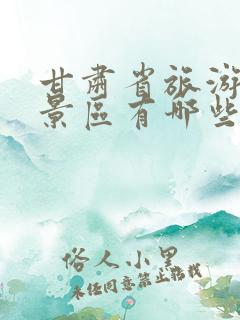 甘肃省旅游
景區有哪些
俗人小里
未经同意禁止转载